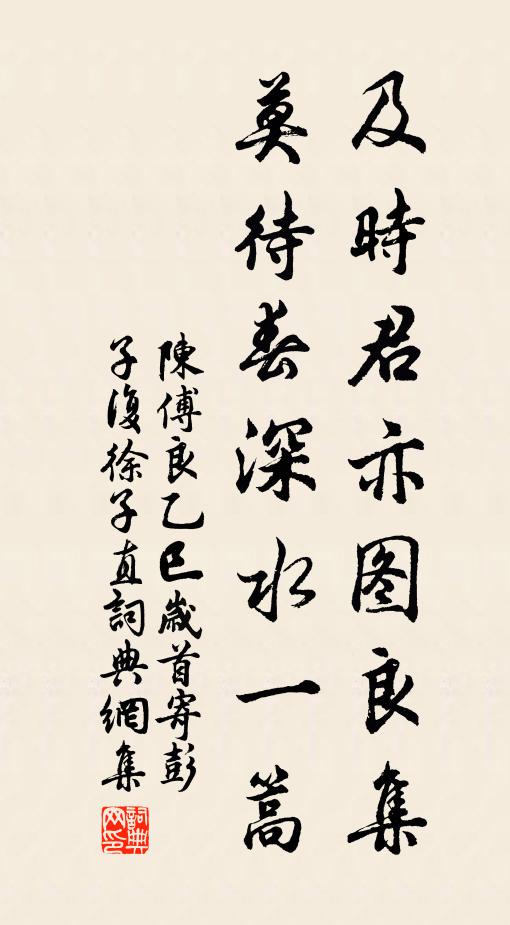 及時君亦图良集
莫待春深水一篙
陳傅良乙巳歲首寄彭
子復徐子直詞典網集
詞典网印